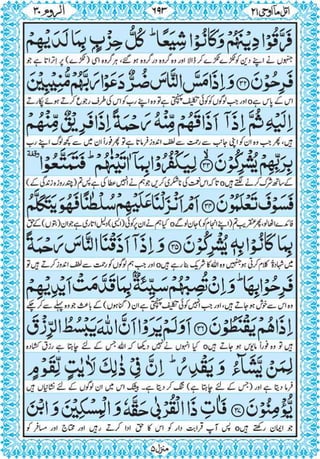 اتل ما اوحی ٢١ ٦٩٣ الروم ٣٠
فَرَّقُوْا دِيْنَهُمْ وَكَانُوْا شِيَعًا ؕ كُلُّ حِزْبٍۭ بِمَا لَدَيْهِمْ
جنہوں نے اپنے دین کو ٹکڑے ٹکڑے کر ڈالا اور وہ گروہ در گروہ ہو گئے، ہر گروہ اسی (ٹکڑے) پر اتراتا ہے جو
فَرِحُوْنَ ﴿٣٢﴾ وَاِذَا مَسَّ النَّاسَ ضُرٌّ دَعَوْا رَبَّهُمْ مُّنِيْبِيْنَ
اس کے پاس ہے o اور جب لوگوں کو کوئی تکلیف پہنچتی ہے تو وہ اپنے رب کو اس کی طرف رجوع کرتے ہوئے پکارتے
اِلَيْهِ ثُمَّ اِذَاۤ اَذَاقَهُمْ مِّنْهُ رَحْمَةً اِذَا فَرِيْقٌ مِّنْهُمْ
ہیں، پھر جب وہ ان کو اپنی جانب سے رحمت سے لطف اندوز فرماتا ہے تو پھر فوراً ان میں سے کچھ لوگ اپنے رب
بِرَبِّهِمْ يُشْرِكُوْنَ ﴿٣٣﴾ لِيَكْفُرُوْا بِمَاۤ اٰتَيْنٰهُمْ ؕ فَتَمَتَّعُوْا
کے ساتھ شرک کرنے لگتے ہیں o تاکہ اس نعمت کی ناشکری کریں جو ہم نے انہیں عطا کی ہے پس تم (چند روزہ زندگی کے)
فَسَوْفَ تَعْلَمُوْنَ ﴿٣٤﴾ اَمْ اَنْزَلْنَا عَلَيْهِمْ سُلْطٰنًا فَهُوَ يَتَكَلَّمُ
فائدے اٹھا لو، پھر عنقریب تم (اپنے انجام کو) جان لو گے o کیا ہم نے ان پر کوئی (ایسی) دلیل اتاری ہے جو ان (بتوں) کے حق
بِمَا كَانُوْا بِهٖ يُشْرِكُوْنَ ﴿٣٥﴾ وَاِذَاۤ اَذَقْنَا النَّاسَ رَحْمَةً
میں شہادۃً کلام کرتی ہو جنہیں وہ اللہ کا شریک بنا رہے ہیں o اور جب ہم لوگوں کو رحمت سے لطف اندوز کرتے ہیں تو
فَرِحُوْا بِهَا ؕ وَاِنْ تُصِبْهُمْ سَيِّئَةٌۢ بِمَا قَدَّمَتْ اَيْدِيْهِمْ
وہ اس سے خوش ہو جاتے ہیں، اور جب انہیں کوئی تکلیف پہنچتی ہے ان (گناہوں) کے باعث جو وہ پہلے سے کر چکے
اِذَا هُمْ يَقْنَطُوْنَ ﴿٣٦﴾ اَوَلَمْ يَرَوْا اَنَّ اللّٰهَ يَبْسُطُ الرِّزْقَ
ہیں تو وہ فوراً مایوس ہو جاتے ہیں o کیا انہوں نے نہیں دیکھا کہ اللہ جس کے لئے چاہتا ہے رزق کشادہ
لِمَنْ يَّشَآءُ وَيَقْدِرُ ؕ اِنَّ فِيْ ذٰلِكَ لَاٰيٰتٍ لِّقَوْمٍ
فرما دیتا ہے اور (جس کے لئے چاہتا ہے) تنگ کر دیتا ہے۔ بیشک اس میں ان لوگوں کے لئے نشانیاں ہیں
يُّؤْمِنُوْنَ ﴿٣٧﴾ فَاٰتِ ذَا الْقُرْبٰى حَقَّهٗ وَالْمِسْكِيْنَ وَابْنَ
جو ایمان رکھتے ہیں o پس آپ قرابت دار کو اس کا حق ادا کرتے رہیں اور محتاج اور مسافر کو
منزل ٥